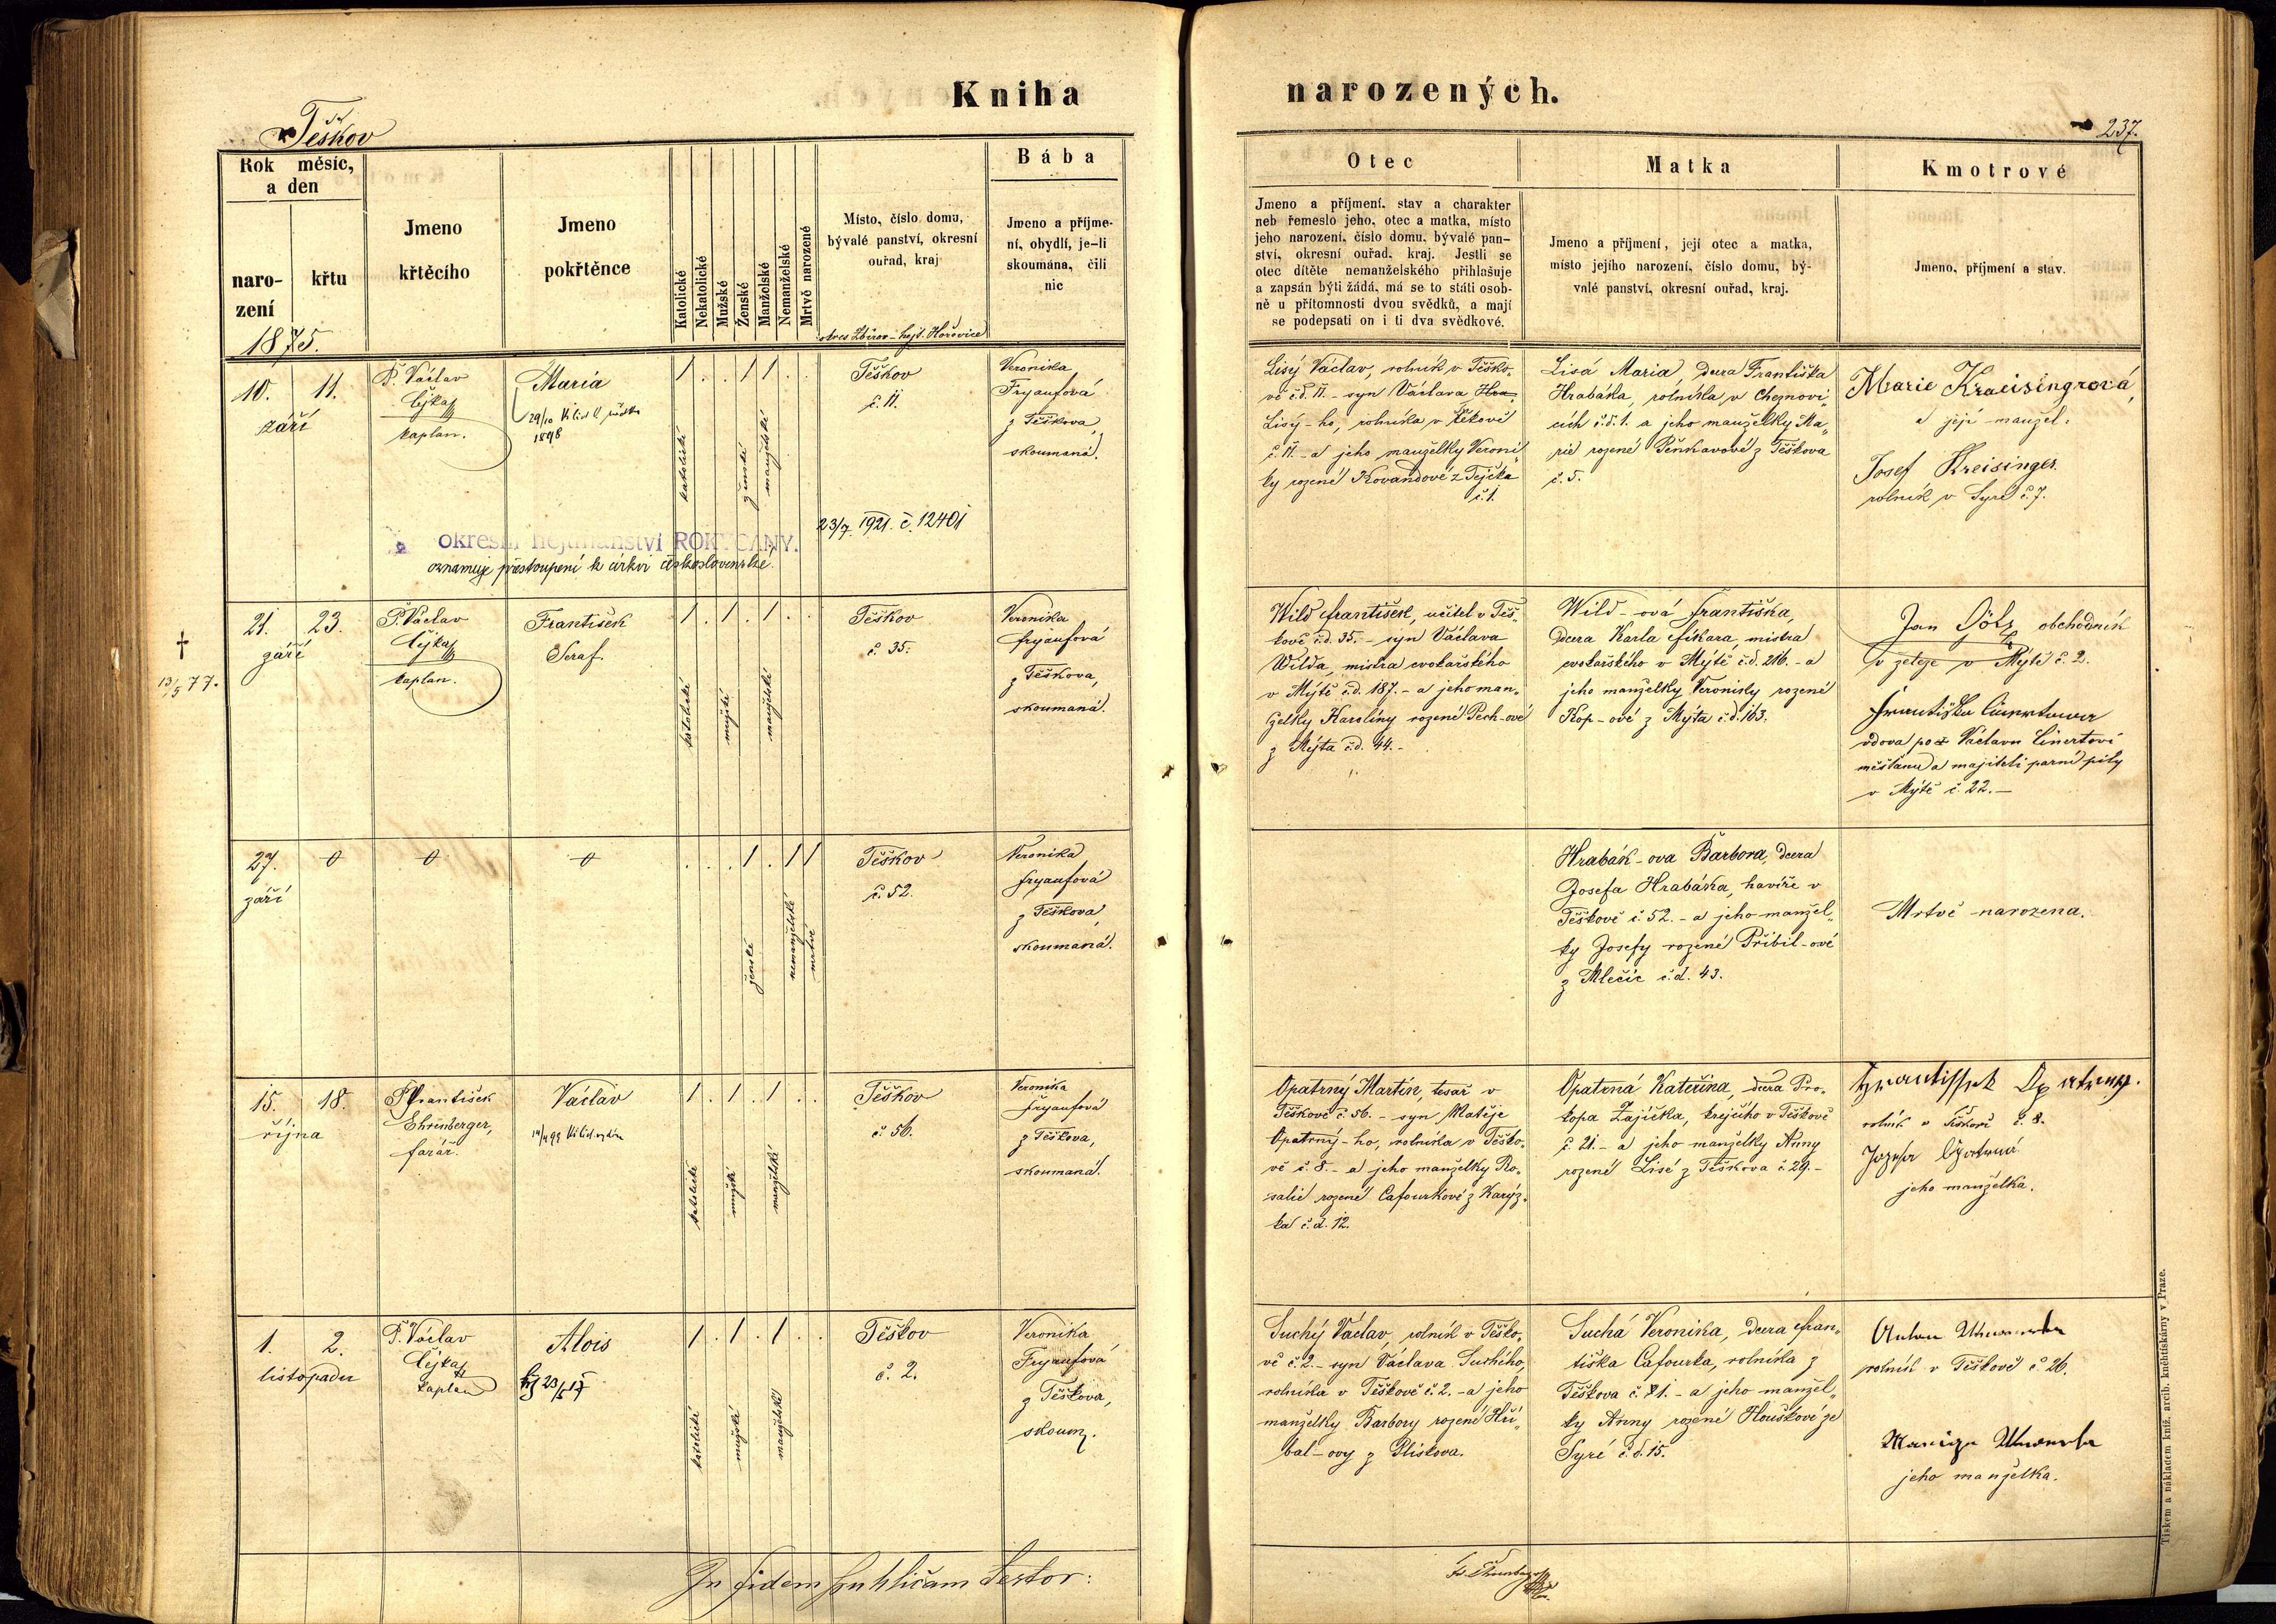 Kniha
narozených.
Těškov
237.
Rok měsíc,
a den
naro-
zení
křtu
1875.
Jmeno
křtěcího
Jmeno
pokřtěnce
Katolické
Nekatolické
Mužské
Ženské
Manželské
Nemanželské
Mrtvě narozené
Místo, číslo domu,
bývalé panství, okresní
ouřad, kraj
okres Zbirov - hejt. Hořovice
Bába
Jmeno a příjme-
ní, obydlí, je-li
skoumána, čili
nic
Otec
Jmeno a příjmení, stav a charakter
neb řemeslo jeho, otec a matka, místo
jeho narození, číslo domu, bývalé pan-
ství, okresní ouřad, kraj. Jestli se
otec dítěte nemanželského přihlašuje
a zapsán býti žádá, má se to státi osob-
ně u přítomnosti dvou svědků, a mají
se podepsati on i ti dva svědkové.
Matka
Jmeno a příjmení, její otec a matka,
místo jejího narození, číslo domu, bý-
valé panství, okresní ouřad, kraj.
Kmotrové
Jmeno, příjmení a stav.
10. 11.
září
P. Václav
Čejka
kaplan.
Maria
29/10
1898
1 . . 1 1 . .
katolické
ženské
manželské
Těškov
č. 11.
Veronika
Fryaufová
z Těškova,
skoumaná.
okresní hejtmanství ROKYCANY.
23/7. 1921. č. 12401
oznamuje přestoupení k církvi československé.
Lisý Václav, rolník v Těško-
vě č.d. 11. - syn Václava
Lisý-ho, rolníka v Těkově
č. 11. - a jeho manželky Veroni-
ky rozené Kovandové z Tejčka
č. 1.
Lisá Maria, dcera Františka
Hrabáka, rolníka v Chejnovi-
cích č.d. 1. a jeho manželky Ma-
rie rozené Pěnkavové z Těškova
č. 5.
Marie Kraisingrová,
a její manžel.
Josef Kreisinger
rolník v Syré č. 7.
21. 23.
září
† 13/5 77.
P. Václav
Čejka
kaplan.
František
Seraf.
1 . 1 . 1 . .
katolické
mužské
manželské
Těškov
č. 35.
Veronika
fryaufová
z Těškova,
skoumaná.
Wild František, učitel v Těš-
kově č.d. 35. - syn Václava
Wilda, mistra cvokařského
v Mýtě č.d. 187. - a jeho man-
želky Karolíny rozené Pech-ové
z Mýta č.d. 44. -
Wild-ová Františka,
dcera Karla Fikara, mistra
cvokařského v Mýtě č.d. 216. - a
jeho manželky Veroniky rozené
Kop-ové z Mýta č.d. 163.
Jan obchodník
v Mýtě č. 2.
Františka
vdova po Václavu Linertovi
měšťanu a majiteli parní pily
v Mýtě č. 22. -
27.
září
0 0 0
. . . 1 . 1 1
ženské
nemanželské
mrtvé
Těškov
č. 52.
Veronika
fryaufová
z Těškova,
skoumaná.
Hrabák-ova Barbora, dcera
Josefa Hrabáka, havíře v
Těškově č. 52. - a jeho manžel-
ky Josefy rozené Přibil-ové
z Mlečic č.d. 43.
Mrtvě narozena.
15. 18.
října
P. František
Ehrenberger,
farář.
Václav
1 . 1 . 1 . .
katolické
mužské
manželské
Těškov
č. 56.
Veronika
fryaufová
z Těškova,
skoumaná.
Opatrný Martin, tesař v
Těškově č. 56. - syn Matěje
Opatrný-ho, rolníka v Těško-
vě č. 8. - a jeho manželky Ro-
salie rozené Cafourkové z Karýz-
ka č.d. 12.
Opatrná Kateřina, dcera Pro-
kopa Zajíčka, krejčího v Těškově
č. 21. - a jeho manželky Anny
rozené Lisé z Těškova č. 29. -
Frantissek Opatrny.
rolník v Těškově č. 8.
Jozefa Opatrná
jeho manželka.
1. 2.
listopadu
P. Václav
Čejka
kaplan
Alois
1 . 1 . 1 . .
katolické
mužské
manželské
Těškov
č. 2.
Veronika
Fryaufová
z Těškova,
skoum.
Suchý Václav, rolník v Těško-
vě č. 2. - syn Václava Suchého,
rolníka v Těškově č. 2. - a jeho
manželky Barbory rozené Hři-
bal-ovy z Pliskova.
Suchá Veronika, dcera Fran-
tiška Cafourka, rolníka z
Těškova č. 21. - a jeho manžel-
ky Anny rozené Houškové ze
Syré č.d. 15.
Anton
rolník v Těškově č. 26.
jeho manželka.
In fidem publicam testor:
Tiskem a nákladem kníž. arcib. kněhtiskárny v Praze.